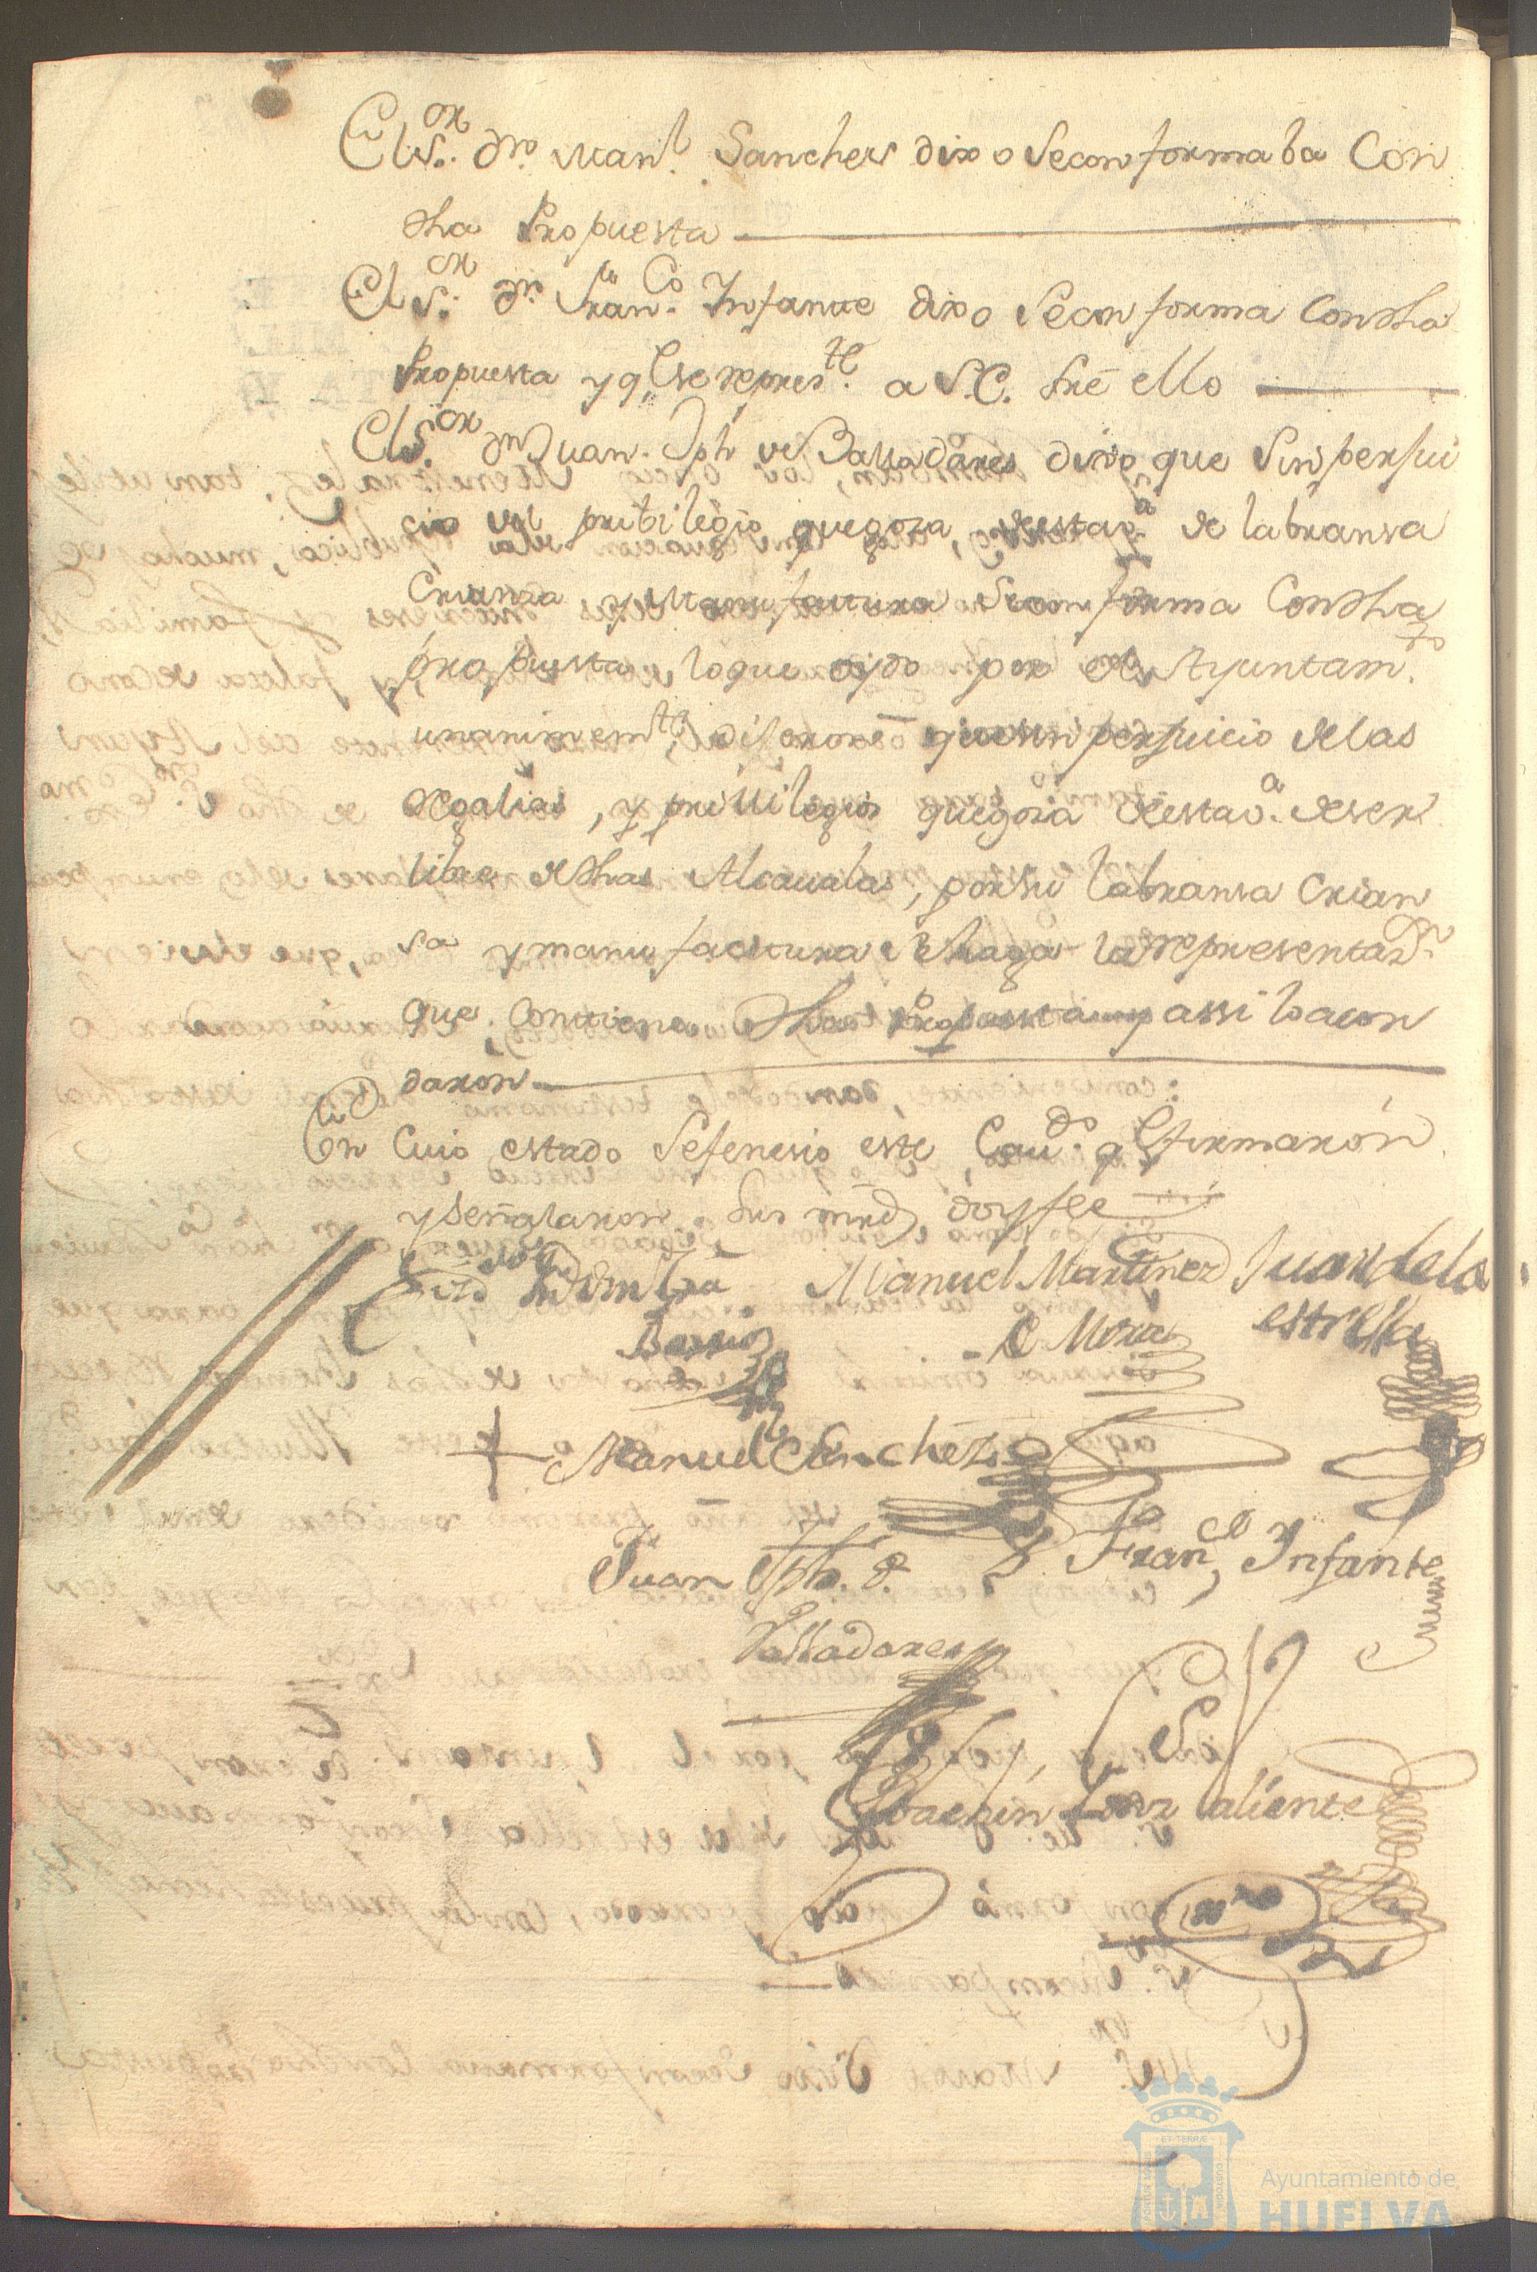 El S.or Dn Man.l Sanches dixo Seconformaba Con
dha Propuesta
El S.or Dn Fran.co Infante dixo Seconforma Condha
Propuesta y q.e se repres.te a S.E. sre ello
El S.or Dn Juan Jph de Valladares dixo que Sinperjui
cio del pribilegio quegoza, de labransa
Crianza, y Manufactura Seconforma Condha
propuesta, loque oydo por el Ayuntam.to
unanimem.te dixeron quesin perjuicio delas
Regalias, y privilegios quegoza deser
libre dedhas Alcavalas, porsu labransa Crian
sa y manufactura se haga la representaz.n
que contiene dha Propuesta y assi loacor
daron
En Cuio estado Sefenesio este Cav.do q.e firmaron
y señalaron Sus mrds, doyfee
Barrios
Manuel Martinez
Mora
Juan dela
estrella
Manuel Sanchez
Juan Jph. d.
Valladares
Fran.co Infante
Joachin Fernz Valiente
Ayuntamiento de
HUELVA